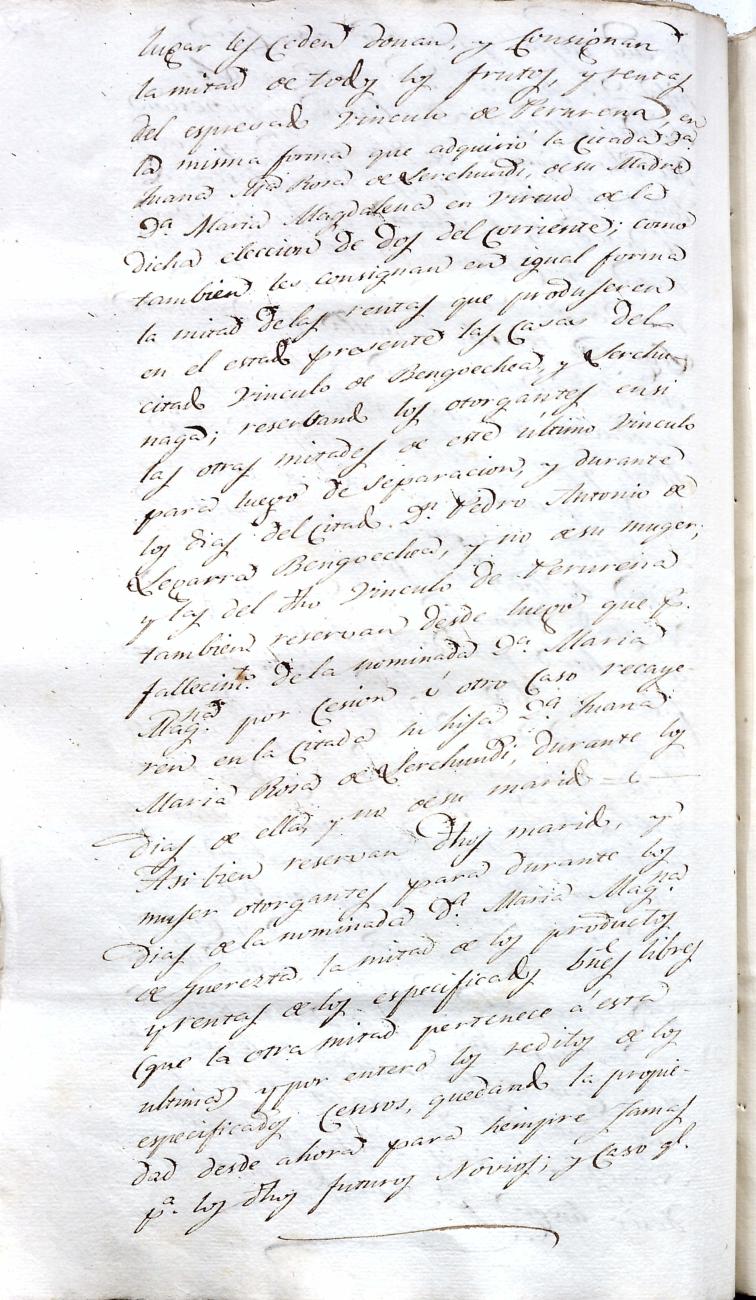 lugar les ceden donan, y consignan
la mitad de todos los frutos, y rentas
del espresado Vinculo de Perurena, en
la misma forma que adquirió la citada Dª
Juana Mª Rosa de Lerchundi, de su Madre
Dª Maria Magdalena en virtud de la
dicha eleccion de dos del corriente; como
tambien les consignan en igual forma
la mitad de las rentas que produseren
en el estado presente las Casas del
citado Vinculo de Bengoechea, y Lerchu
naga; reservando los otorgantes en si
las otras mitades de este ultimo Vinculo
para luego de separacion, y durante
los dias del citado Dn. Pedro Antonio de
Legarra Bengoechea, y no de su muger;
y las del dho Vinculo de Perurena
tambien reservan desde luego que pr.
fallecimto. de la nominada Dª. Maria
Magna. por cesion ú otro caso recaye-
ren en la citada su hija Dª Juana
Maria Rosa de Lerchundi, durante los
dias de ella, y no de su marido = 6 —
Asi bien reservan dhos marido, y
muser otorgantes para durante los
dias de la nominada Dª. Maria Magna.
de Guerezta, la mitad de los productos
y rentas de los especificados bnes libres
(que la otra mitad pertenece á esta
ultima) y por entero los reditos de los
especificados Censos, quedando la propie-
dad desde ahora para siempre Jamas
pª. los dhos futuros Novios; y Caso ql.